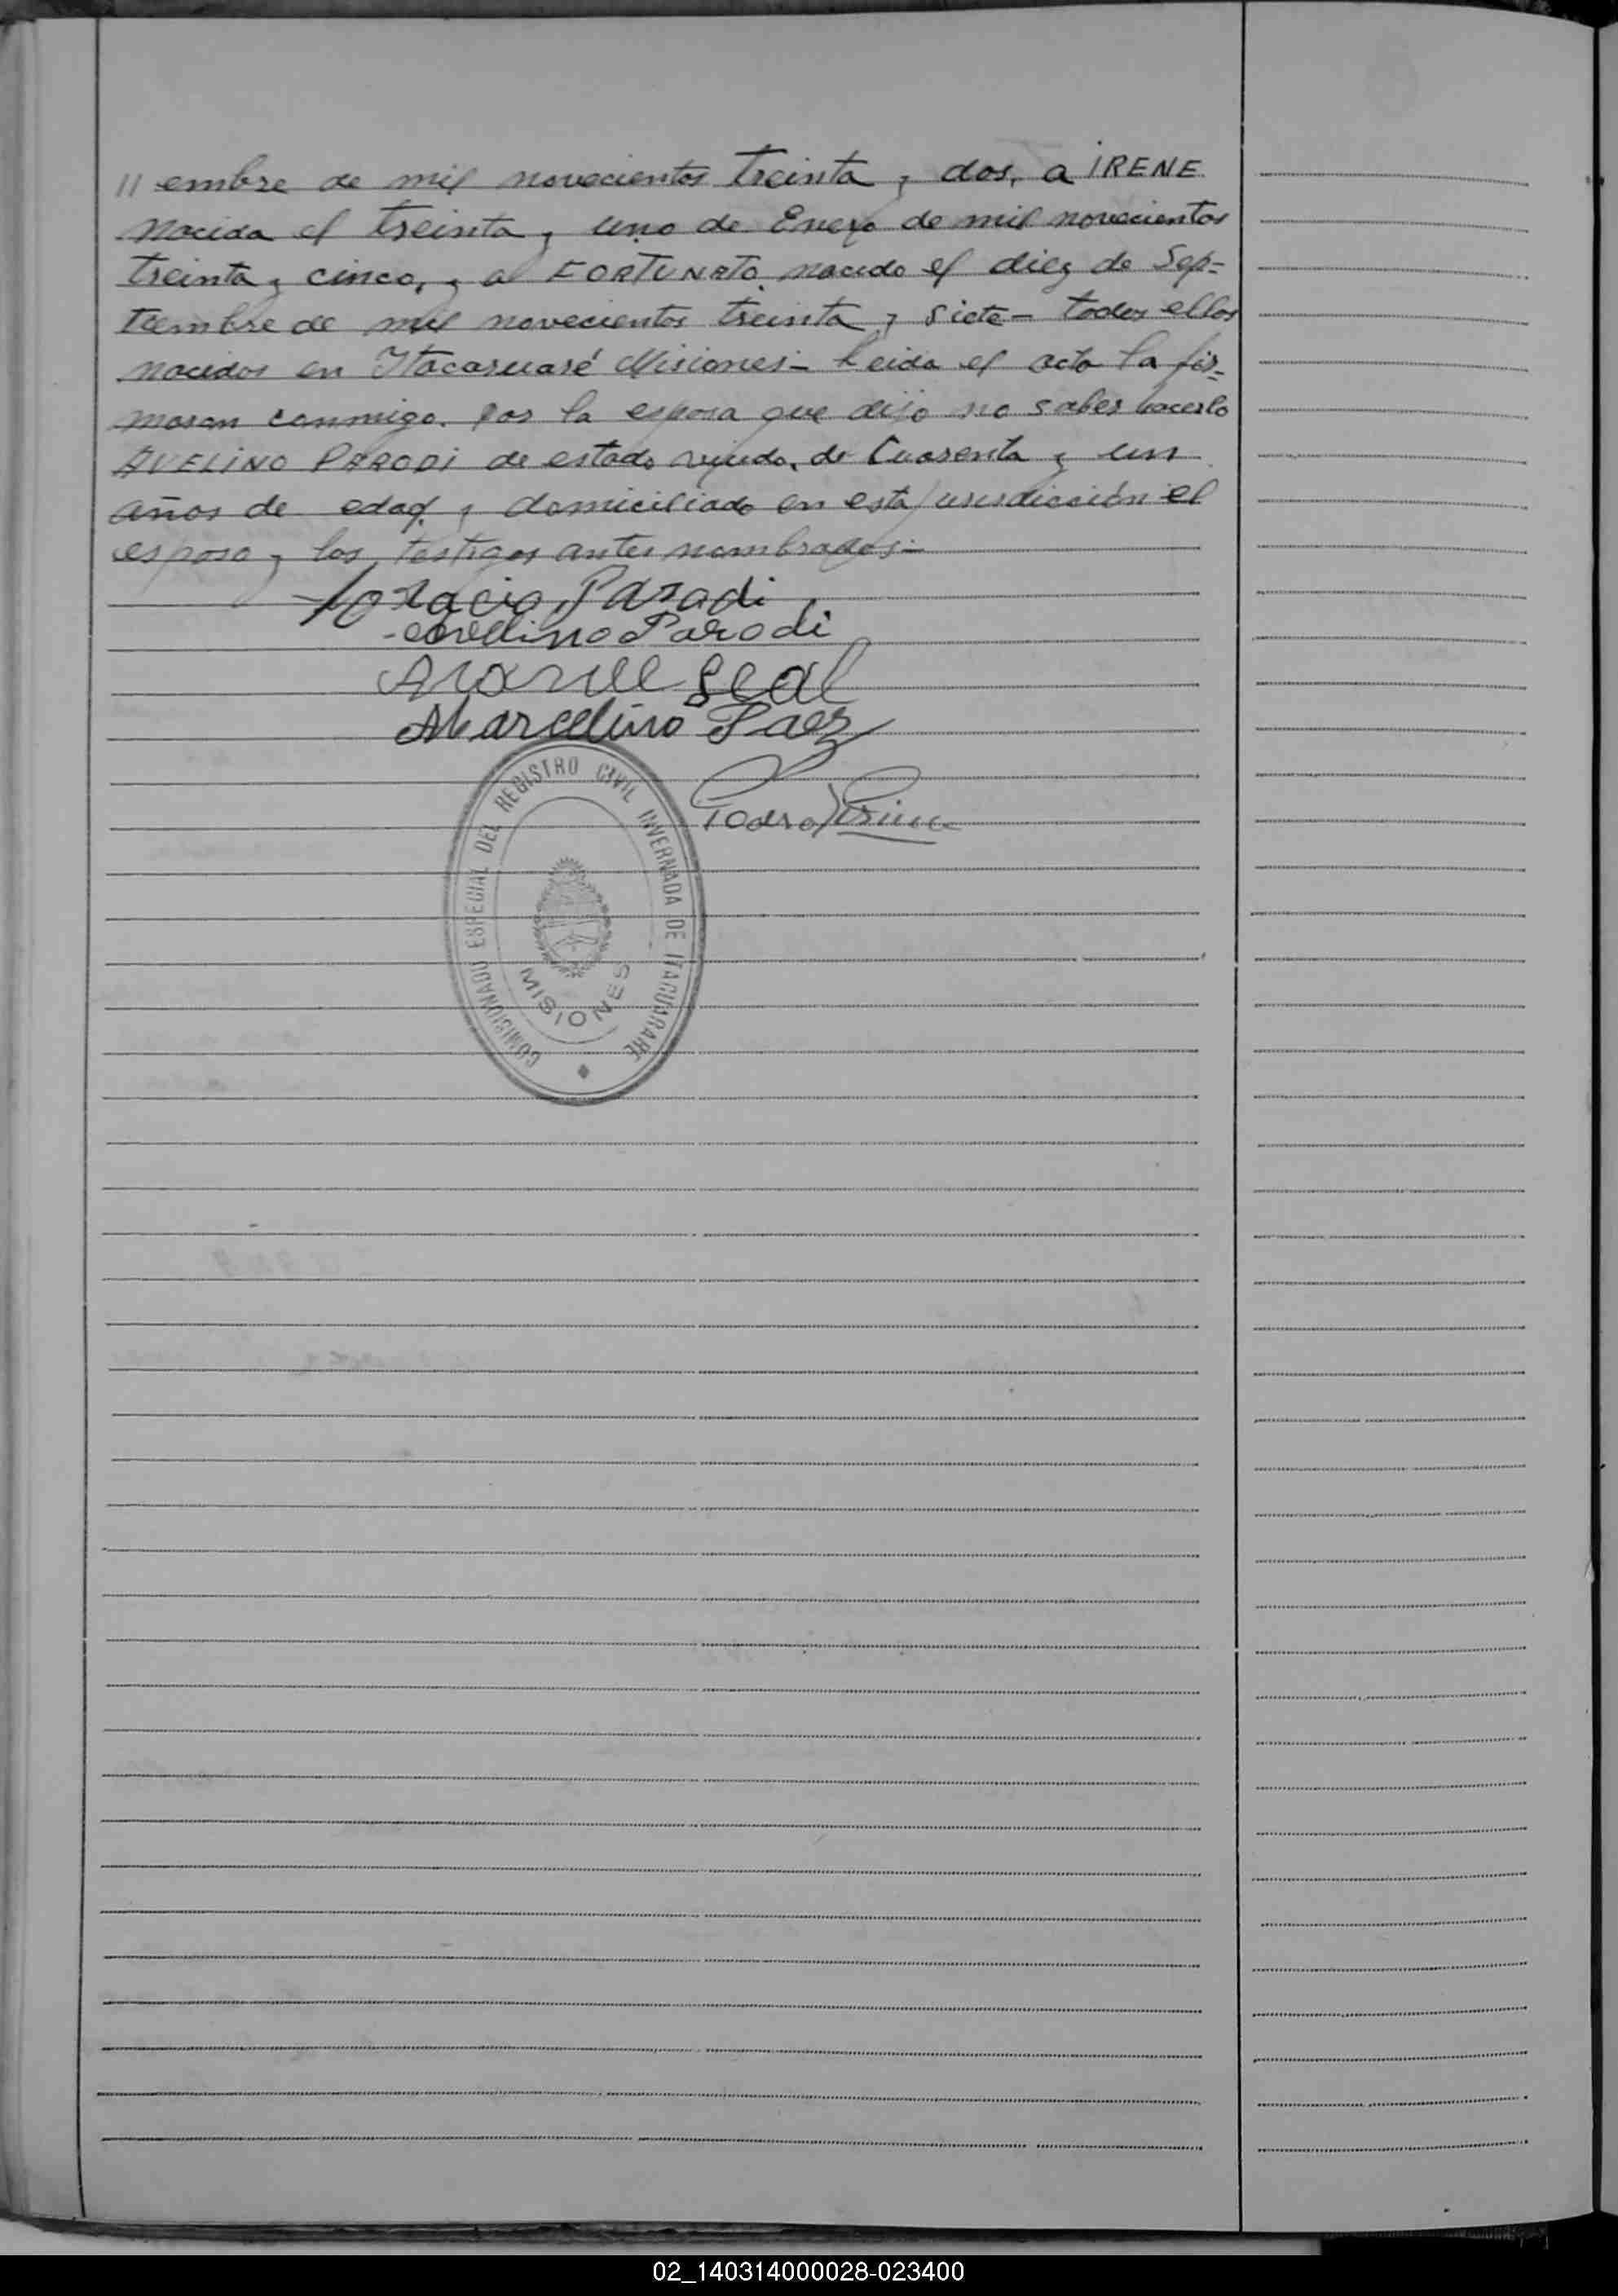 // embre de mil novecientos treinta y dos, a IRENE
nacida el treinta y uno de Enero de mil novecientos
treinta y cinco, y a FORTUNATO nacido el diez de Sep-
tiembre de mil novecientos treinta y siete - todos ellos
nacidos en Itacaruaré Misiones - Leida el acta la fir-
maron conmigo. por la esposa que dijo no saber hacerlo
AVELINO PARODI de estado viudo, de Cuarenta y un
años de edad y domiciliado en esta jurisdicción el
esposo y los testigos antes nombrados.-
Parodi
Avellino Parodi
Leal
Marcelino Paez
Pedro
COMISIONADO ESPECIAL DEL REGISTRO CIVIL INVERNADA DE ITACUARARE
MISIONES
02_140314000028-023400